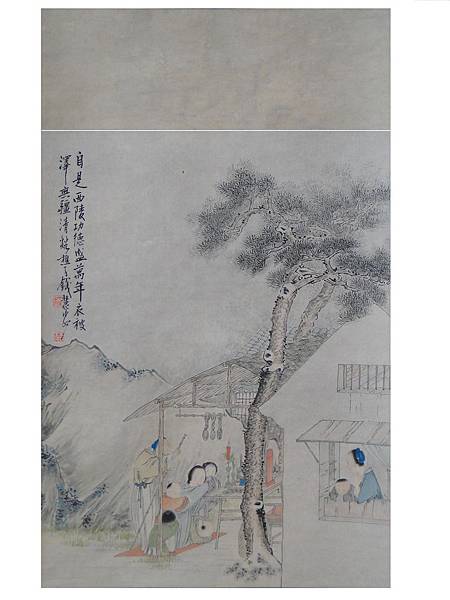 自是西陵功德盛萬年衣被
澤無疆清谿樵子錢慧安